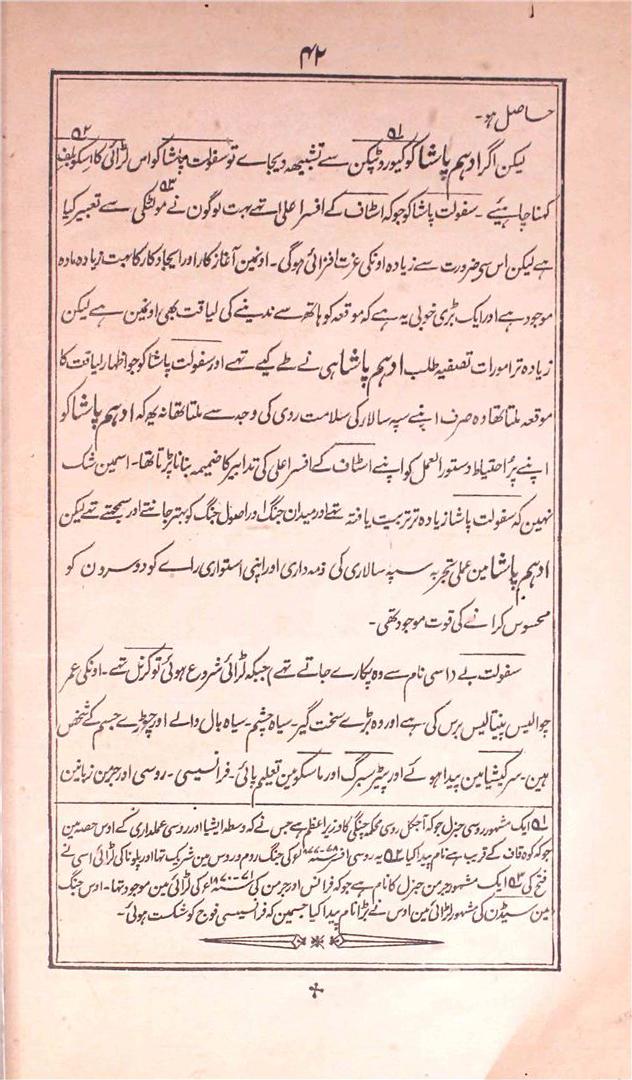 ۴۲
حاصل ہو۔
لیکن اگر ادہم پاشا کو کیوروپٹکن سے تشبیہہ دیجاے تو سفولت پاشا کو اس لڑائی کا اسکوبلف
کہنا چاہیئے۔ سفولت پاشا کو جو کہ اسٹاف کے افسر اعلی تھے بہت لوگون نے مولٹکی سے تعبیر کیا
ہے لیکن اس سی ضرورت سے زیادہ اونکی عزت افزائی ہوگی۔ اونمین آغاز کار اور ایجاد کار کا بہت زیادہ مادہ
موجود ہے اور ایک بڑی خوبی یہ ہے کہ موقعہ کو ہاتھ سے ندینے کی لیاقت بھی اونمین ہے لیکن
زیادہ تر امورات تصفیہ طلب ادہم پاشا ہی نے طے کیے تہے اور سفولت پاشا کو جو اظہار لیاقت کا
موقعہ ملتا تھا وہ صرف اپنے سپہ سالار کی سلامت روی کی وجہ سے ملتا تھا نہ یہ کہ ادہم پاشا کو
اپنے پُر احتیاط دستور العمل کو اپنے اسٹاف کے افسر اعلی کی تدابیر کا ضمیمہ بنانا پڑتا تھا۔ اسمین شک
نہین کہ سفولت پاشا زیادہ تر تربیت یافتہ تھے اور میدان جنگ اور اصول جنگ کو بہتر جانتے اور سمجھتے تھے لیکن
ادہم پاشا مین عملی تجربہ سپہ سالاری کی ذمہ داری اور اپنی استواری راے کو دوسرون کو
محسوس کرانے کی قوت موجود تھی۔
سفولت بے (اسی نام سے وہ پکارے جاتے تہے) جبکہ لڑائی شروع ہوئی تو کرنل تہے۔ اونکی عمر
چوالیس پنیتالیس برس کی ہے اور وہ بڑے سخت گیر۔ سیاہ چشم۔ سیاہ بال والے اور چوڑے جسم کے شخص
ہین۔ سرکیشیا مین پیدا ہوئے اور پیٹرسبرگ اور ماسکو مین تعلیم پائی۔ فرانسیسی۔ روسی اور جرمن زبانین
۵۱ ایک مشہور روسی جنرل جو کہ آجکل روسی محکمہ جنگی کا وزیر اعظم ہے جس نے کہ وسط ایشیا اور روسی عملداری کے اوس حصہ مین
جو کہ کوہ قاف کے قریب ہے نام پیدا کیا ۵۲ یہ روسی افسر سنہ ۷۸-۱۸۷۷ء کی جنگ روم و روس مین شریک تھا اور پلونا کی لڑائی اسی نے
فتح کی ۵۳ ایک مشہور جرمن جنرل کا نام ہے جو کہ فرانس اور جرمن کی سنہ ۷۱-۱۸۷۰ء کی لڑائی مین موجود تھا۔ اوس جنگ
مین سیڈن کی مشہور لڑائی مین اوس نے بڑا نام پیدا کیا جسمین کہ فرانسیسی فوج کو شکست ہوئی۔